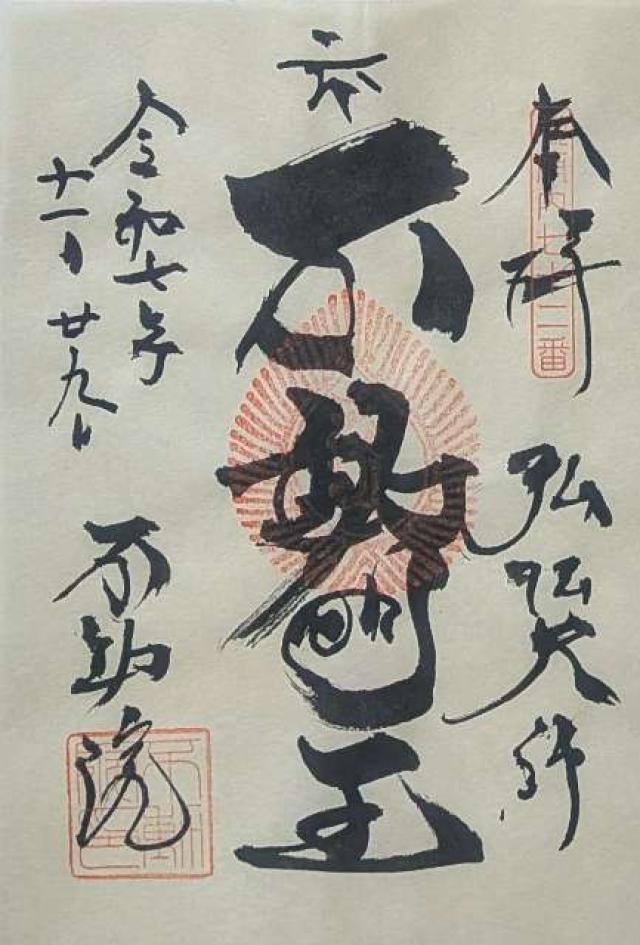 七十二番
奉拝
弘法大師
不動明王
令和七年
十一月廿九日
不動院